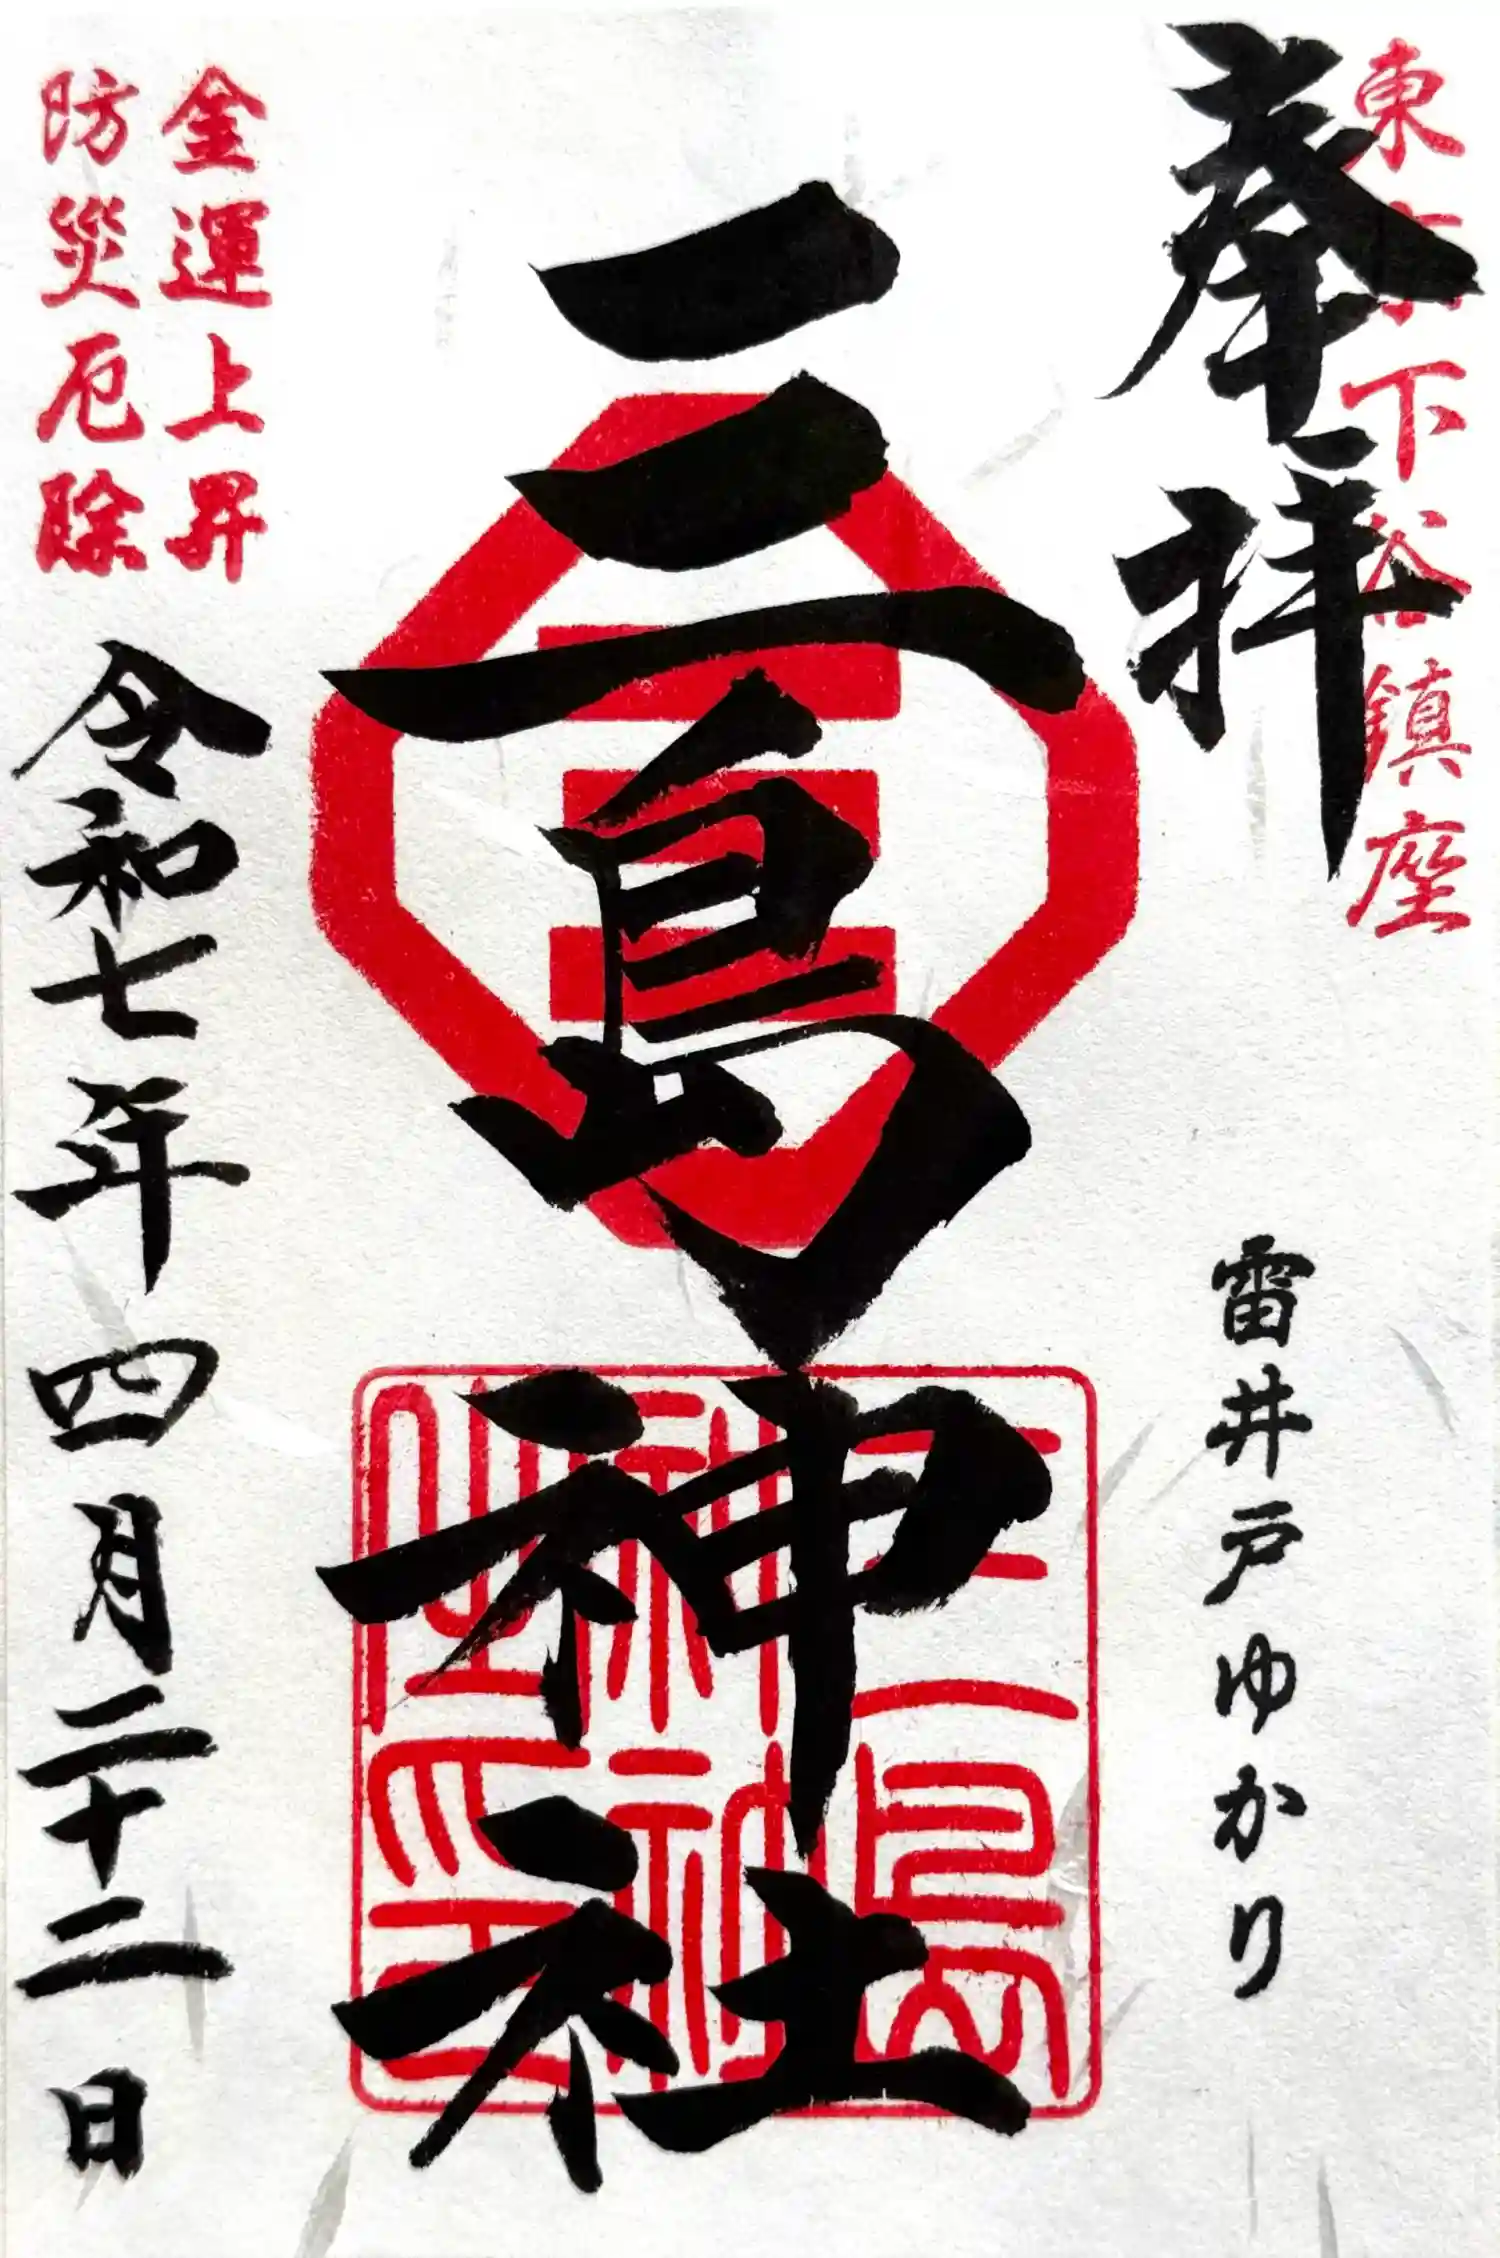 東京下谷鎮座
奉拝
雷井戸ゆかり
三島神社
三島
神社
之印
金運上昇
防災厄除
令和七年四月二十二日